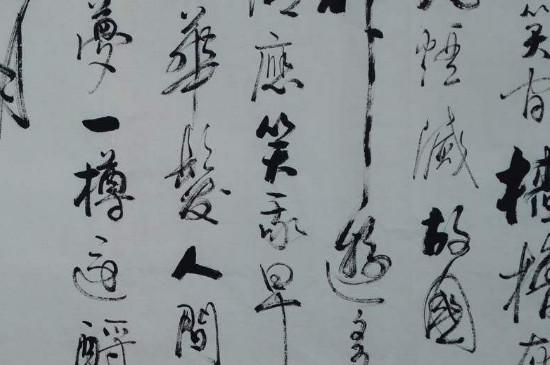 笑間檣櫓
煙滅故國
神遊多
情應笑我早
華髮人間
夢一樽還酹
月